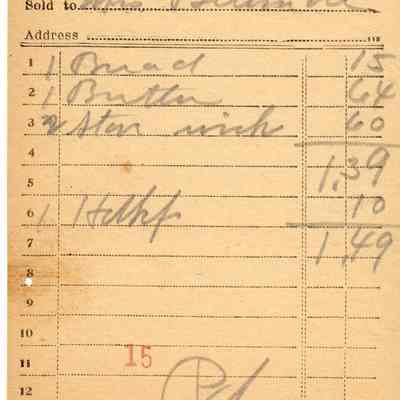 Sold to Mrs
Address
1 1 Bread 15
2 1 Butter 64
3 2 Star 60
4
1.39
5
10
6 1 Hdkf
7 1.49
8
9
10
11 15
12 Pd